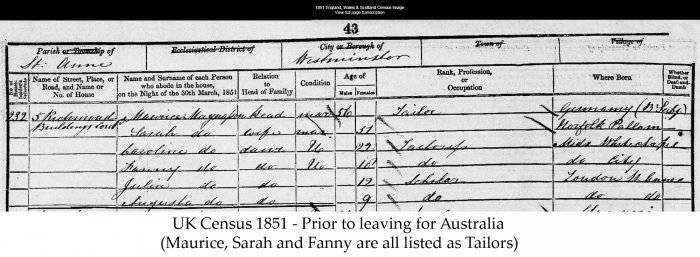 1851 England, Wales & Scotland Census Image
View full page transcription
43
Parish or Township of
Ecclesiastical District of
City or Borough of
Town of
Village of
St. Anne
Westminster
Name of Street, Place, or Road, and Name or No. of House
Name and Surname of each Person who abode in the house, on the Night of the 30th March, 1851
Relation to Head of Family
Condition
Age of
Males
Females
Rank, Profession, or Occupation
Where Born
Whether Blind, or Deaf-and-Dumb
232 5 Richmond Maurice Head mar 56 Tailor Germany
Buildings Sarah do wife mar 51 Norfolk
Caroline do daur U 22 Middx Whitechapel
Fanny do do U 16 do do City
Julia do do 12 Scholar London
Augusta do do 9 do do do
UK Census 1851 - Prior to leaving for Australia
(Maurice, Sarah and Fanny are all listed as Tailors)